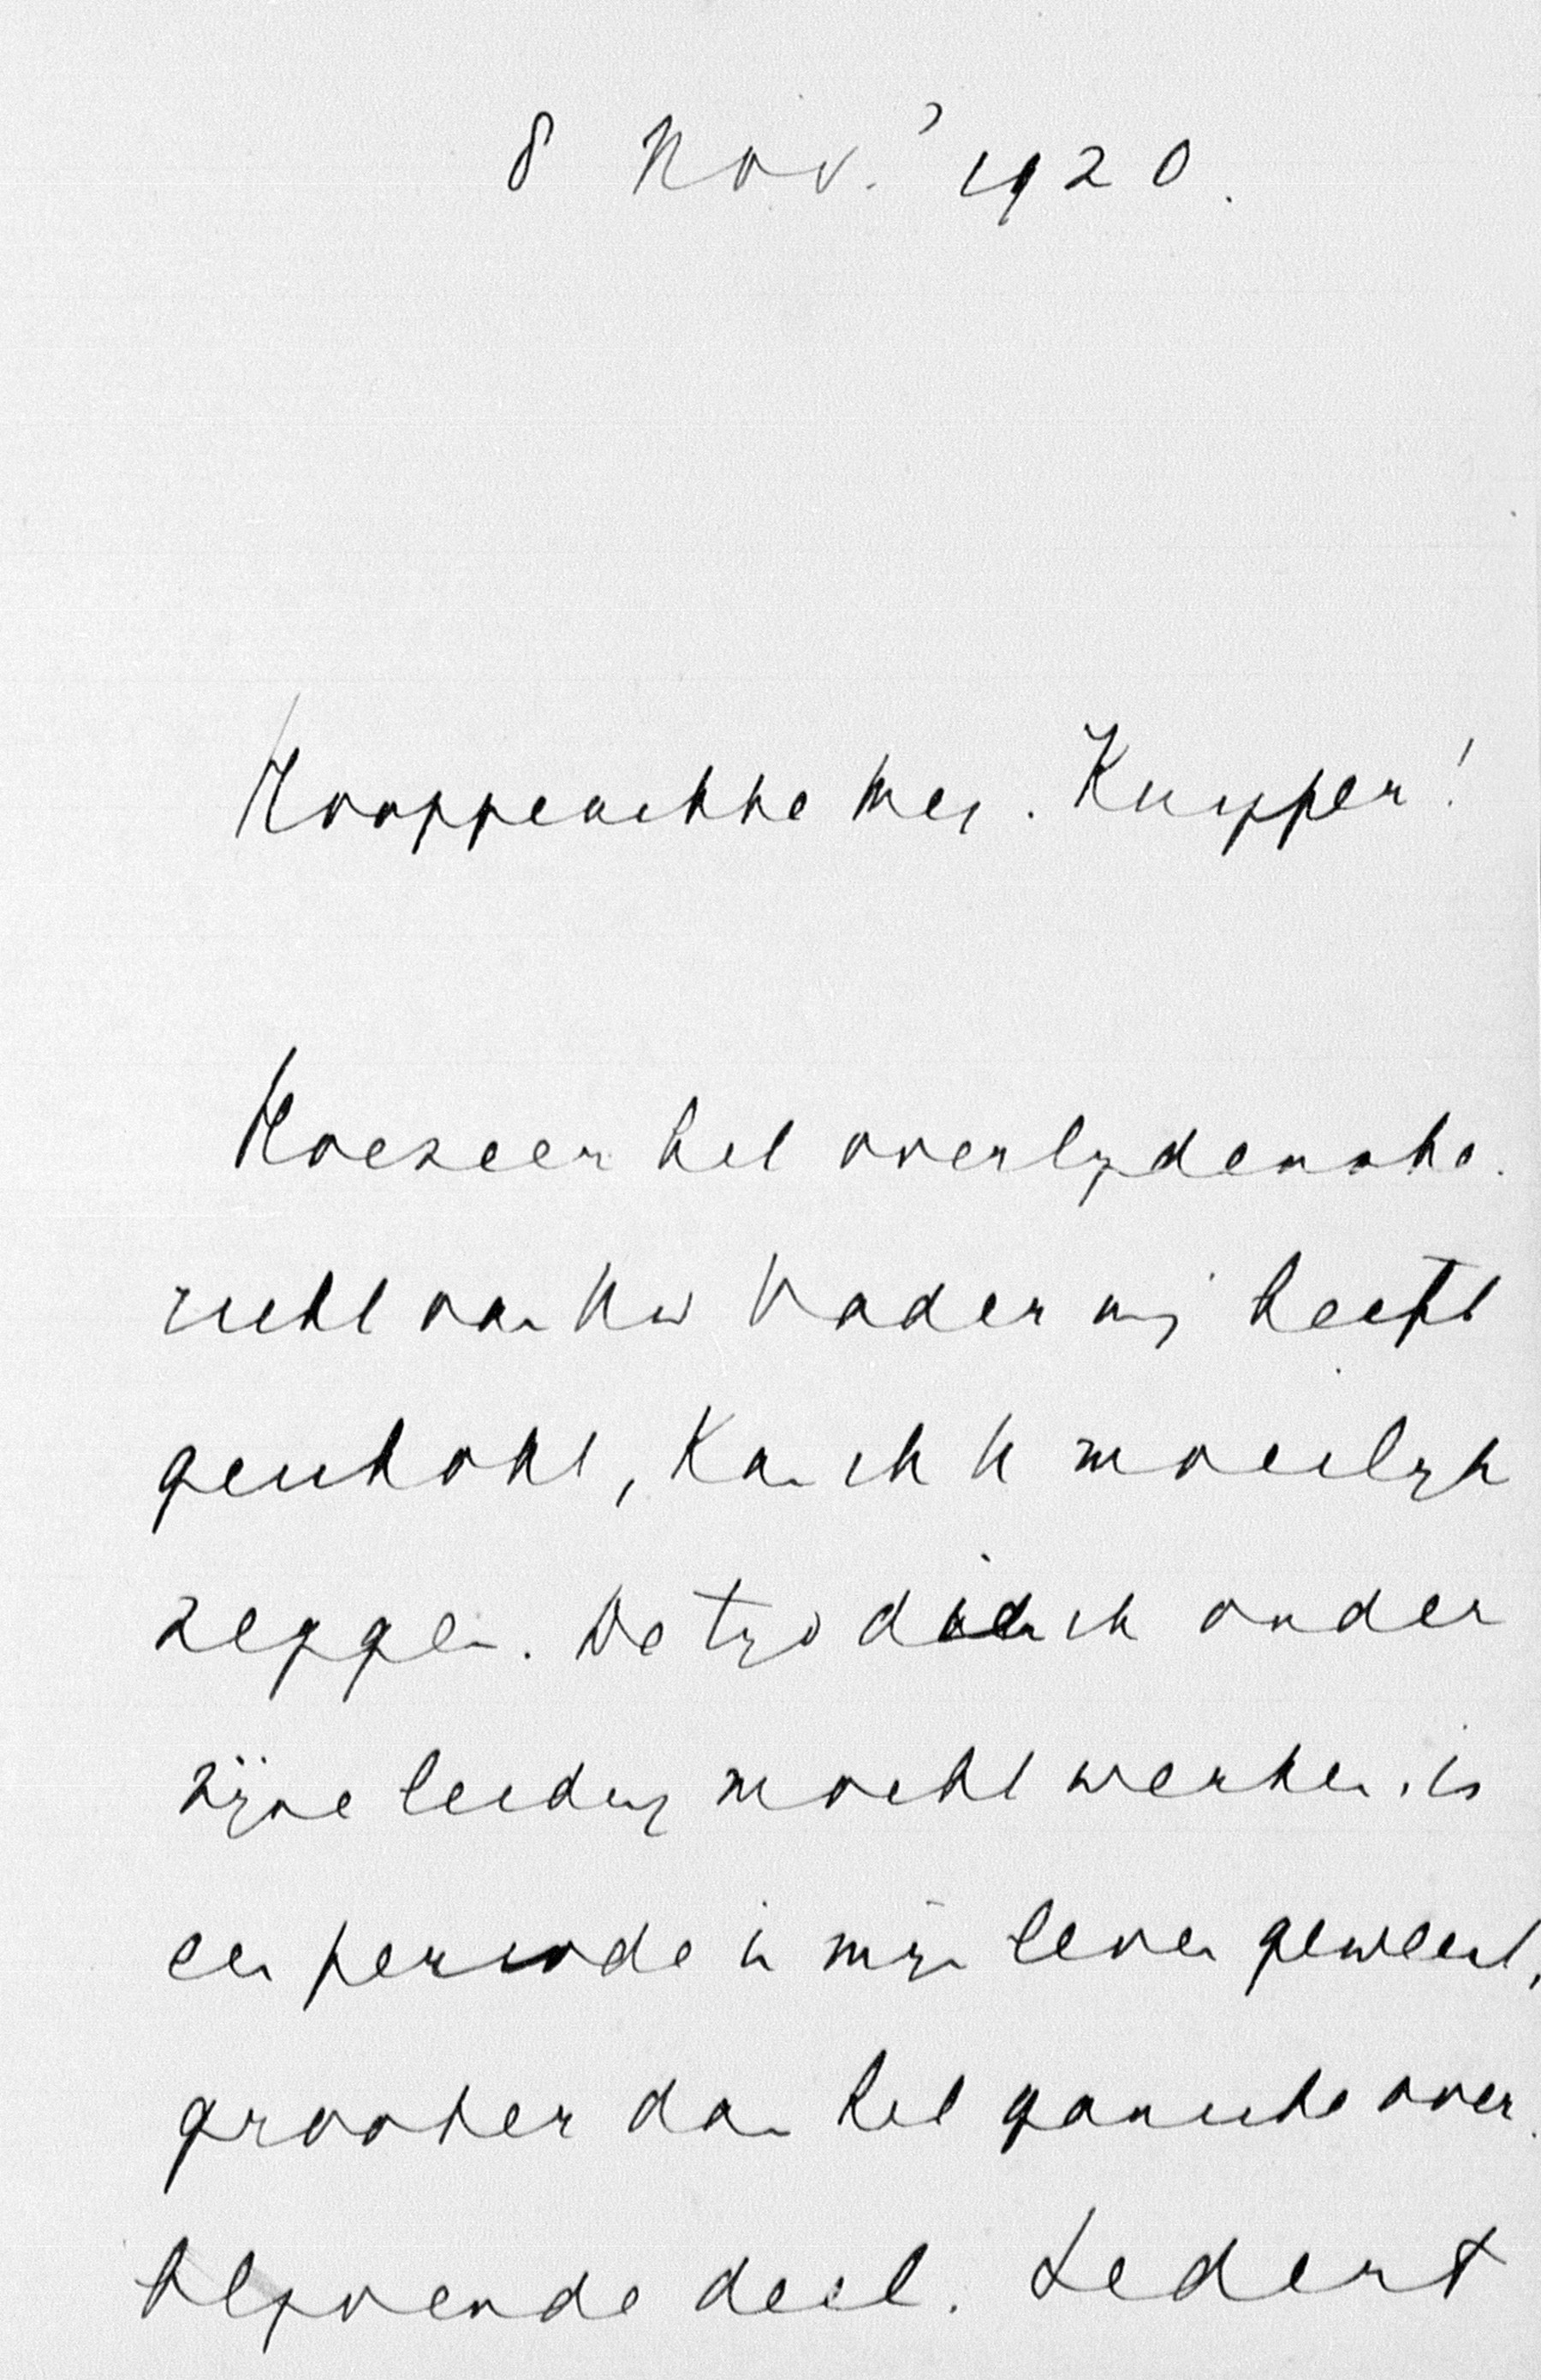 8 Nov. 1920.
Hooggeachte Mej. Kuyper!
Hoezeer het overlydensbe-
richt van Uw Vader mij heeft
geschokt, kan ik U moeilyk
zeggen. De tyd die ik onder
zijne leiding mocht werken, is
een periode in mijn leven geweest,
grooter dan het gansche over-
blyvende deel. Sedert